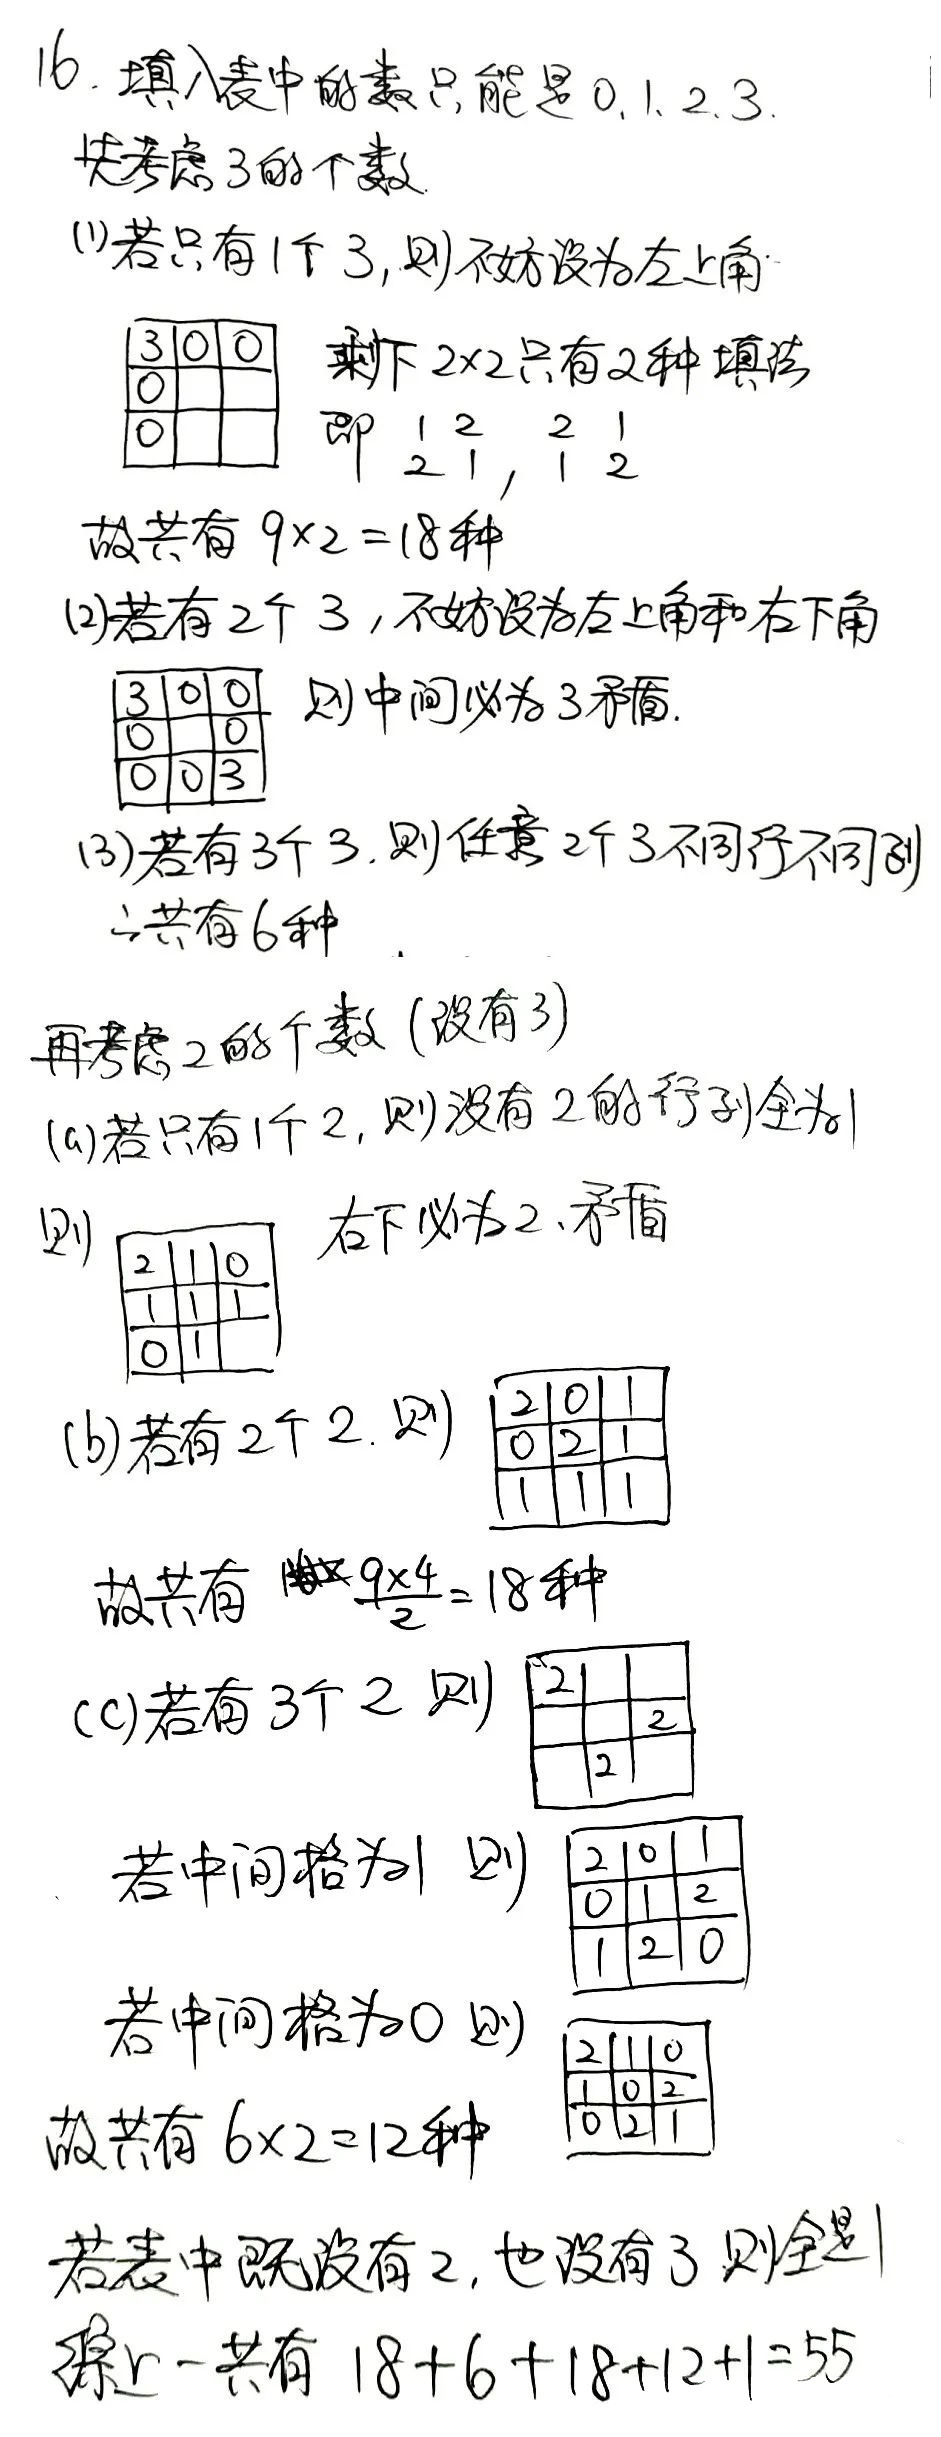 16. 填入表中的数只能是0.1.2.3.
先考虑3的个数.
(1)若只有1个3,则不妨设为左上角.
3 0 0
0
0
剩下2×2只有2种填法
即 1 2   2 1
2 1 , 1 2
故共有 9×2=18种
(2)若有2个3,不妨设为左上角和右下角
3 0 0
0   0
0 0 3
则中间必为3矛盾.
(3)若有3个3.则任意2个3不同行不同列
∴共有6种
再考虑2的个数(没有3)
(a)若只有1个2,则没有2的行列全为1
则
2 1 0
1 1 1
0 1
右下必为2、矛盾
(b)若有2个2.则
2 0 1
0 2 1
1 1 1
故共有 9×4/2=18种
(c)若有3个2 则
2
2
2
若中间格为1 则
2 0 1
0 1 2
1 2 0
若中间格为0 则
2 1 0
1 0 2
0 2 1
故共有 6×2=12种
若表中既没有2,也没有3 则全是1
综上一共有 18+6+18+12+1=55